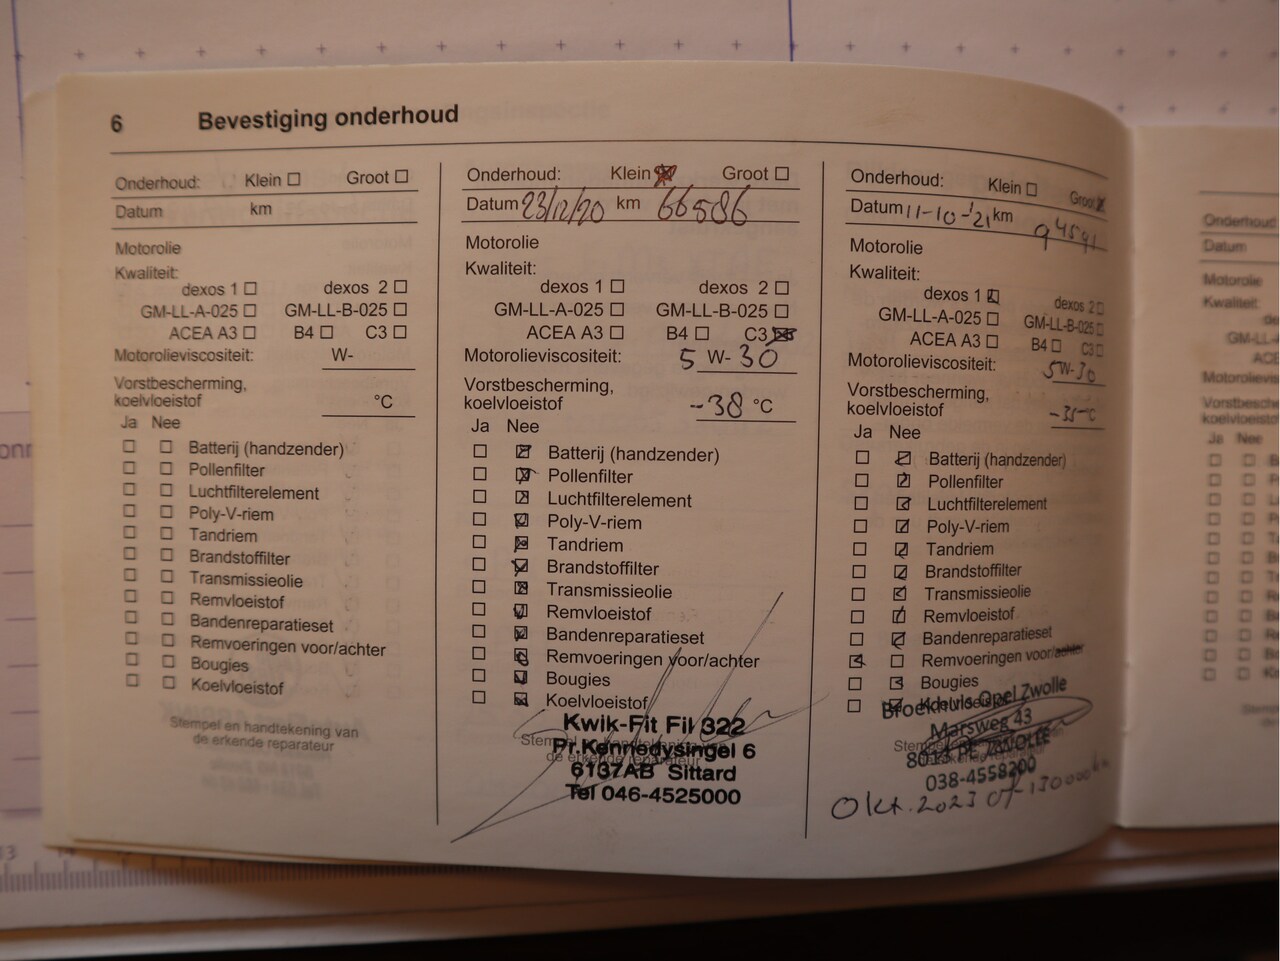 6 Bevestiging onderhoud
Onderhoud: Klein ☐ Groot ☐
Datum km
Motorolie
Kwaliteit:
dexos 1 ☐ dexos 2 ☐
GM-LL-A-025 ☐ GM-LL-B-025 ☐
ACEA A3 ☐ B4 ☐ C3 ☐
Motorolieviscositeit: W-
Vorstbescherming,
koelvloeistof °C
Ja Nee
☐ ☐ Batterij (handzender)
☐ ☐ Pollenfilter
☐ ☐ Luchtfilterelement
☐ ☐ Poly-V-riem
☐ ☐ Tandriem
☐ ☐ Brandstoffilter
☐ ☐ Transmissieolie
☐ ☐ Remvloeistof
☐ ☐ Bandenreparatieset
☐ ☐ Remvoeringen voor/achter
☐ ☐ Bougies
☐ ☐ Koelvloeistof
Stempel en handtekening van
de erkende reparateur
Onderhoud: Klein ☒ Groot ☐
Datum 23/12/20 km 66586
Motorolie
Kwaliteit:
dexos 1 ☐ dexos 2 ☐
GM-LL-A-025 ☐ GM-LL-B-025 ☐
ACEA A3 ☐ B4 ☐ C3 ☒
Motorolieviscositeit: 5 W- 30
Vorstbescherming,
koelvloeistof -38 °C
Ja Nee
☐ ☒ Batterij (handzender)
☐ ☒ Pollenfilter
☐ ☒ Luchtfilterelement
☐ ☒ Poly-V-riem
☐ ☒ Tandriem
☐ ☒ Brandstoffilter
☐ ☒ Transmissieolie
☐ ☒ Remvloeistof
☐ ☒ Bandenreparatieset
☐ ☒ Remvoeringen voor/achter
☐ ☒ Bougies
☐ ☒ Koelvloeistof
Kwik-Fit Fil 322
Pr.Kennedysingel 6
de erkende reparateur
6137AB Sittard
Tel 046-4525000
Onderhoud: Klein ☐ Groot ☒
Datum 11-10-'21 km 94591
Motorolie
Kwaliteit:
dexos 1 ☒ dexos 2 ☐
GM-LL-A-025 ☐ GM-LL-B-025 ☐
ACEA A3 ☐ B4 ☐ C3 ☐
Motorolieviscositeit: 5 W- 30
Vorstbescherming,
koelvloeistof °C
Ja Nee
☐ ☒ Batterij (handzender)
☐ ☒ Pollenfilter
☐ ☒ Luchtfilterelement
☐ ☒ Poly-V-riem
☐ ☒ Tandriem
☐ ☒ Brandstoffilter
☐ ☒ Transmissieolie
☐ ☒ Remvloeistof
☐ ☒ Bandenreparatieset
☒ ☐ Remvoeringen voor/achter
☐ ☒ Bougies
☐ ☒ Koelvloeistof
Broekhuis Opel Zwolle
Marsweg 43
8014 ZWOLLE
038-4558200
Okt. 2023 130000
Onderhoud:
Datum
Motorolie
Kwaliteit:
Ja Nee